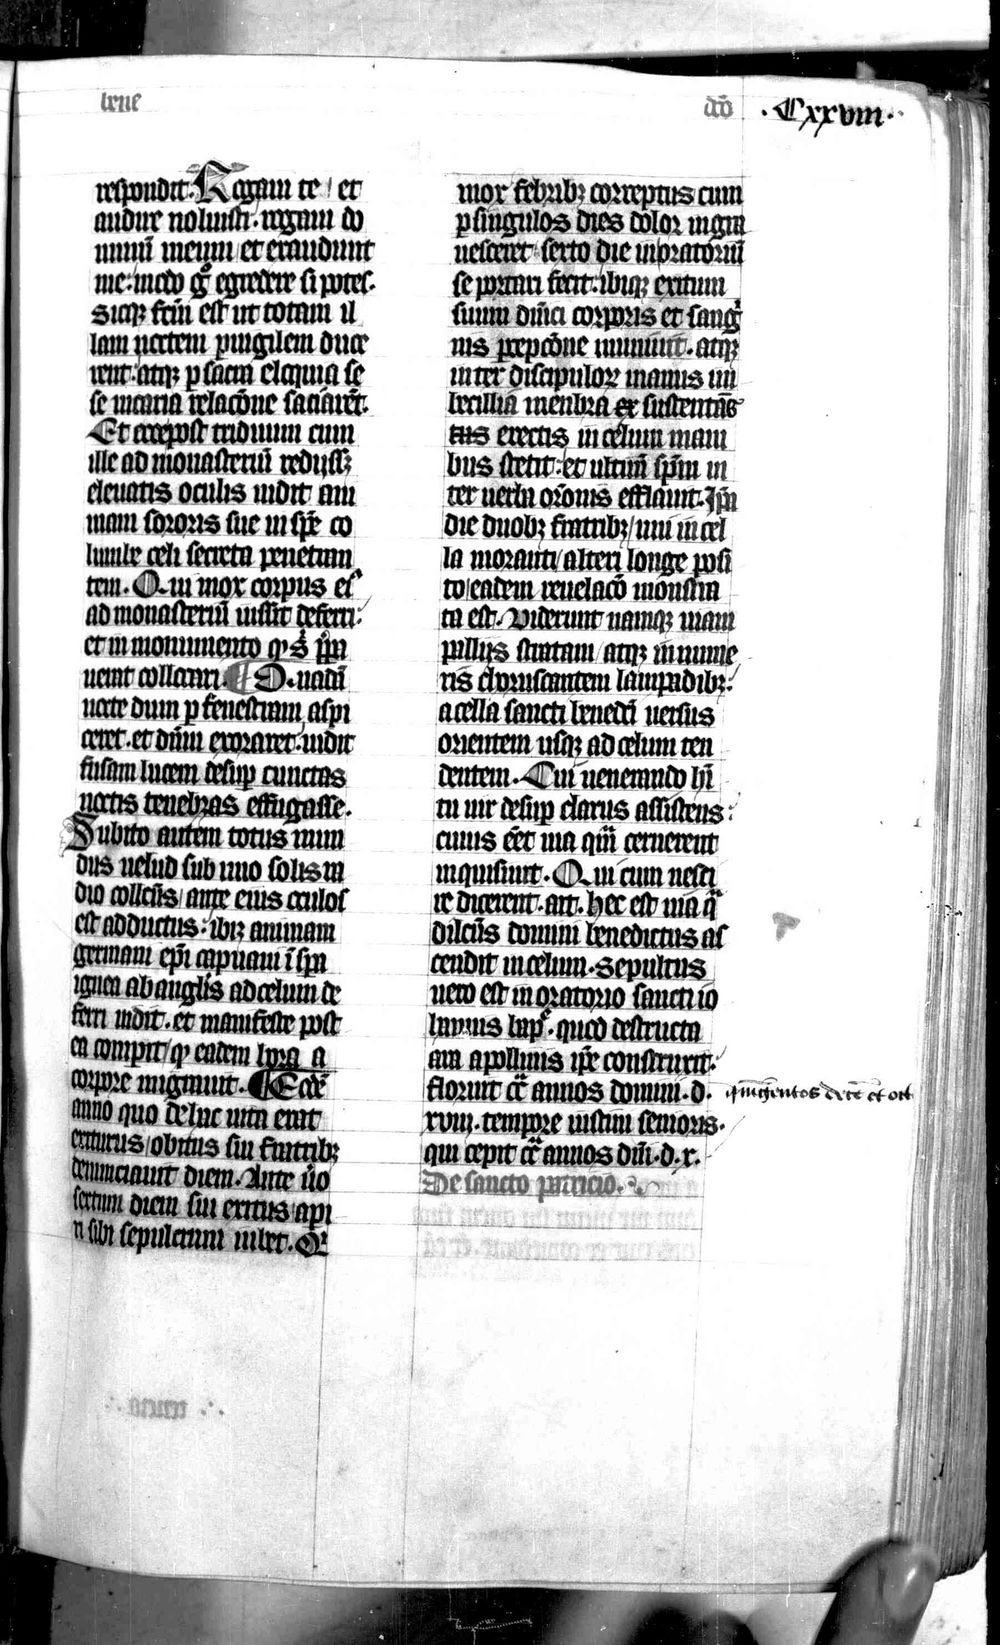 bene
dc̄o
.Cxxviii.
respondit. Rogaui te / et
audire noluisti. rogaui do
minū meum et exaudiuit
me: modo gͦ egredere si potes.
Sicqꝫ fc̄m est ut totam il
lam noctem ꝑuigilem duce
rent: atqꝫ ꝑ sacra eloquia se
se uicaria relacōne saciarēt.
Et ecce post triduum cum
ille ad monasteriū redijssꝫ
eleuatis oculis uidit ani
mam sororis sue in spē co
lumbe celi secreta penetran
tem. Qui mox corpus eiꝰ
ad monasteriū iussit deferri:
et in monumento qͦ s̄ ip̄a
uerat collocari. Quadā
nocte dum ꝑ fenestram aspi
ceret. et dn̄m exoraret. uidit
fusam lucem desuꝑ cunctas
noctis tenebras effugasse.
Subito autem totus mun
dus uelud sub uno solis ra
dio collc̄us / ante eius oculos
est adductus: ibiqꝫ animam
germani ep̄i capuani ī spa
ignea ab anglis ad celum de
ferri uidit. et manifeste post
ea comperit / qꝫ eadem hora a
corpore migrauit. Eodē
anno quo de hac uita erat
exiturus / obitus sui fratribꝫ
denunciauit diem. Ante u̇o
sextum diem sui exitus / api
ri sibi sepulcrum iubet. Qͥ
mox febribꝫ correptus cum
ꝑ singulos dies dolor ingra
uesceret / sexto die in oratoriū
se portari fecit: ibiqꝫ exitum
suum dn̄ici corporis et sangͥ
nis ꝑcepcōne muniuit. atqꝫ
inter discipuloꝝ manus im
becillia menbra sustentās
erectis in celum mani
bus stetit: et ultimū spm̄ in
ter uerba or̄onis efflauit. Ip̄a
die duobꝫ fratribꝫ / uni in cel
la moranti / alteri longe posi
to / eadem reuelacō monstra
ta est. Viderunt namqꝫ uiam
pallijs stratam / atqꝫ in nume
ris choruscantem lampadibꝫ:
a cella sancti benedc̄i uersus
orientem usqꝫ ad celum ten
dentem. Cui uenerando hi
tu uir desuꝑ clarus assistens:
cuius eēt uia quā cernerent
inquisiuit. Qui cum nesci
re dicerent. ait. hec est uia qͣ
dilcūs domini benedictus as
cendit in celum. Sepultus
uero est in oratorio sancti io
hannis bap̄e. quod destructa
ara apollinis ip̄e construxit.
floruit cͣ annos domini .d.
xviij. tempore iustini senioris.
qui cepit cͣ annos dn̄i .d.x.
De sancto patricio.
quingentos decē et oct